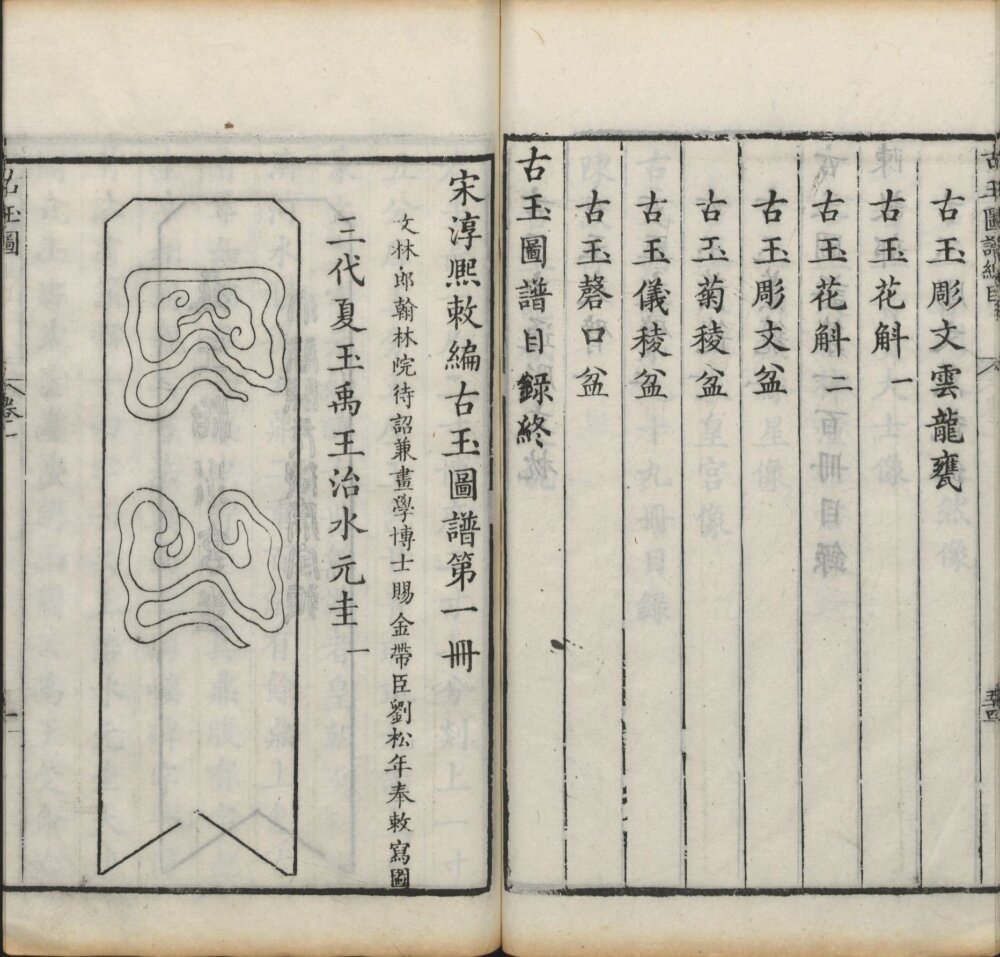 古玉圖譜總目
古玉彫文雲龍甕
古玉花斛一
古玉花斛二
古玉彫文盆
古玉菊稜盆
古玉儀稜盆
古玉磬口盆
古玉圖譜目錄終
宋淳熙敕編古玉圖譜第一冊
文林郎翰林院待詔兼畫學博士賜金帶臣劉松年奉敕寫圖
三代夏玉禹王治水元圭一
古玉圖